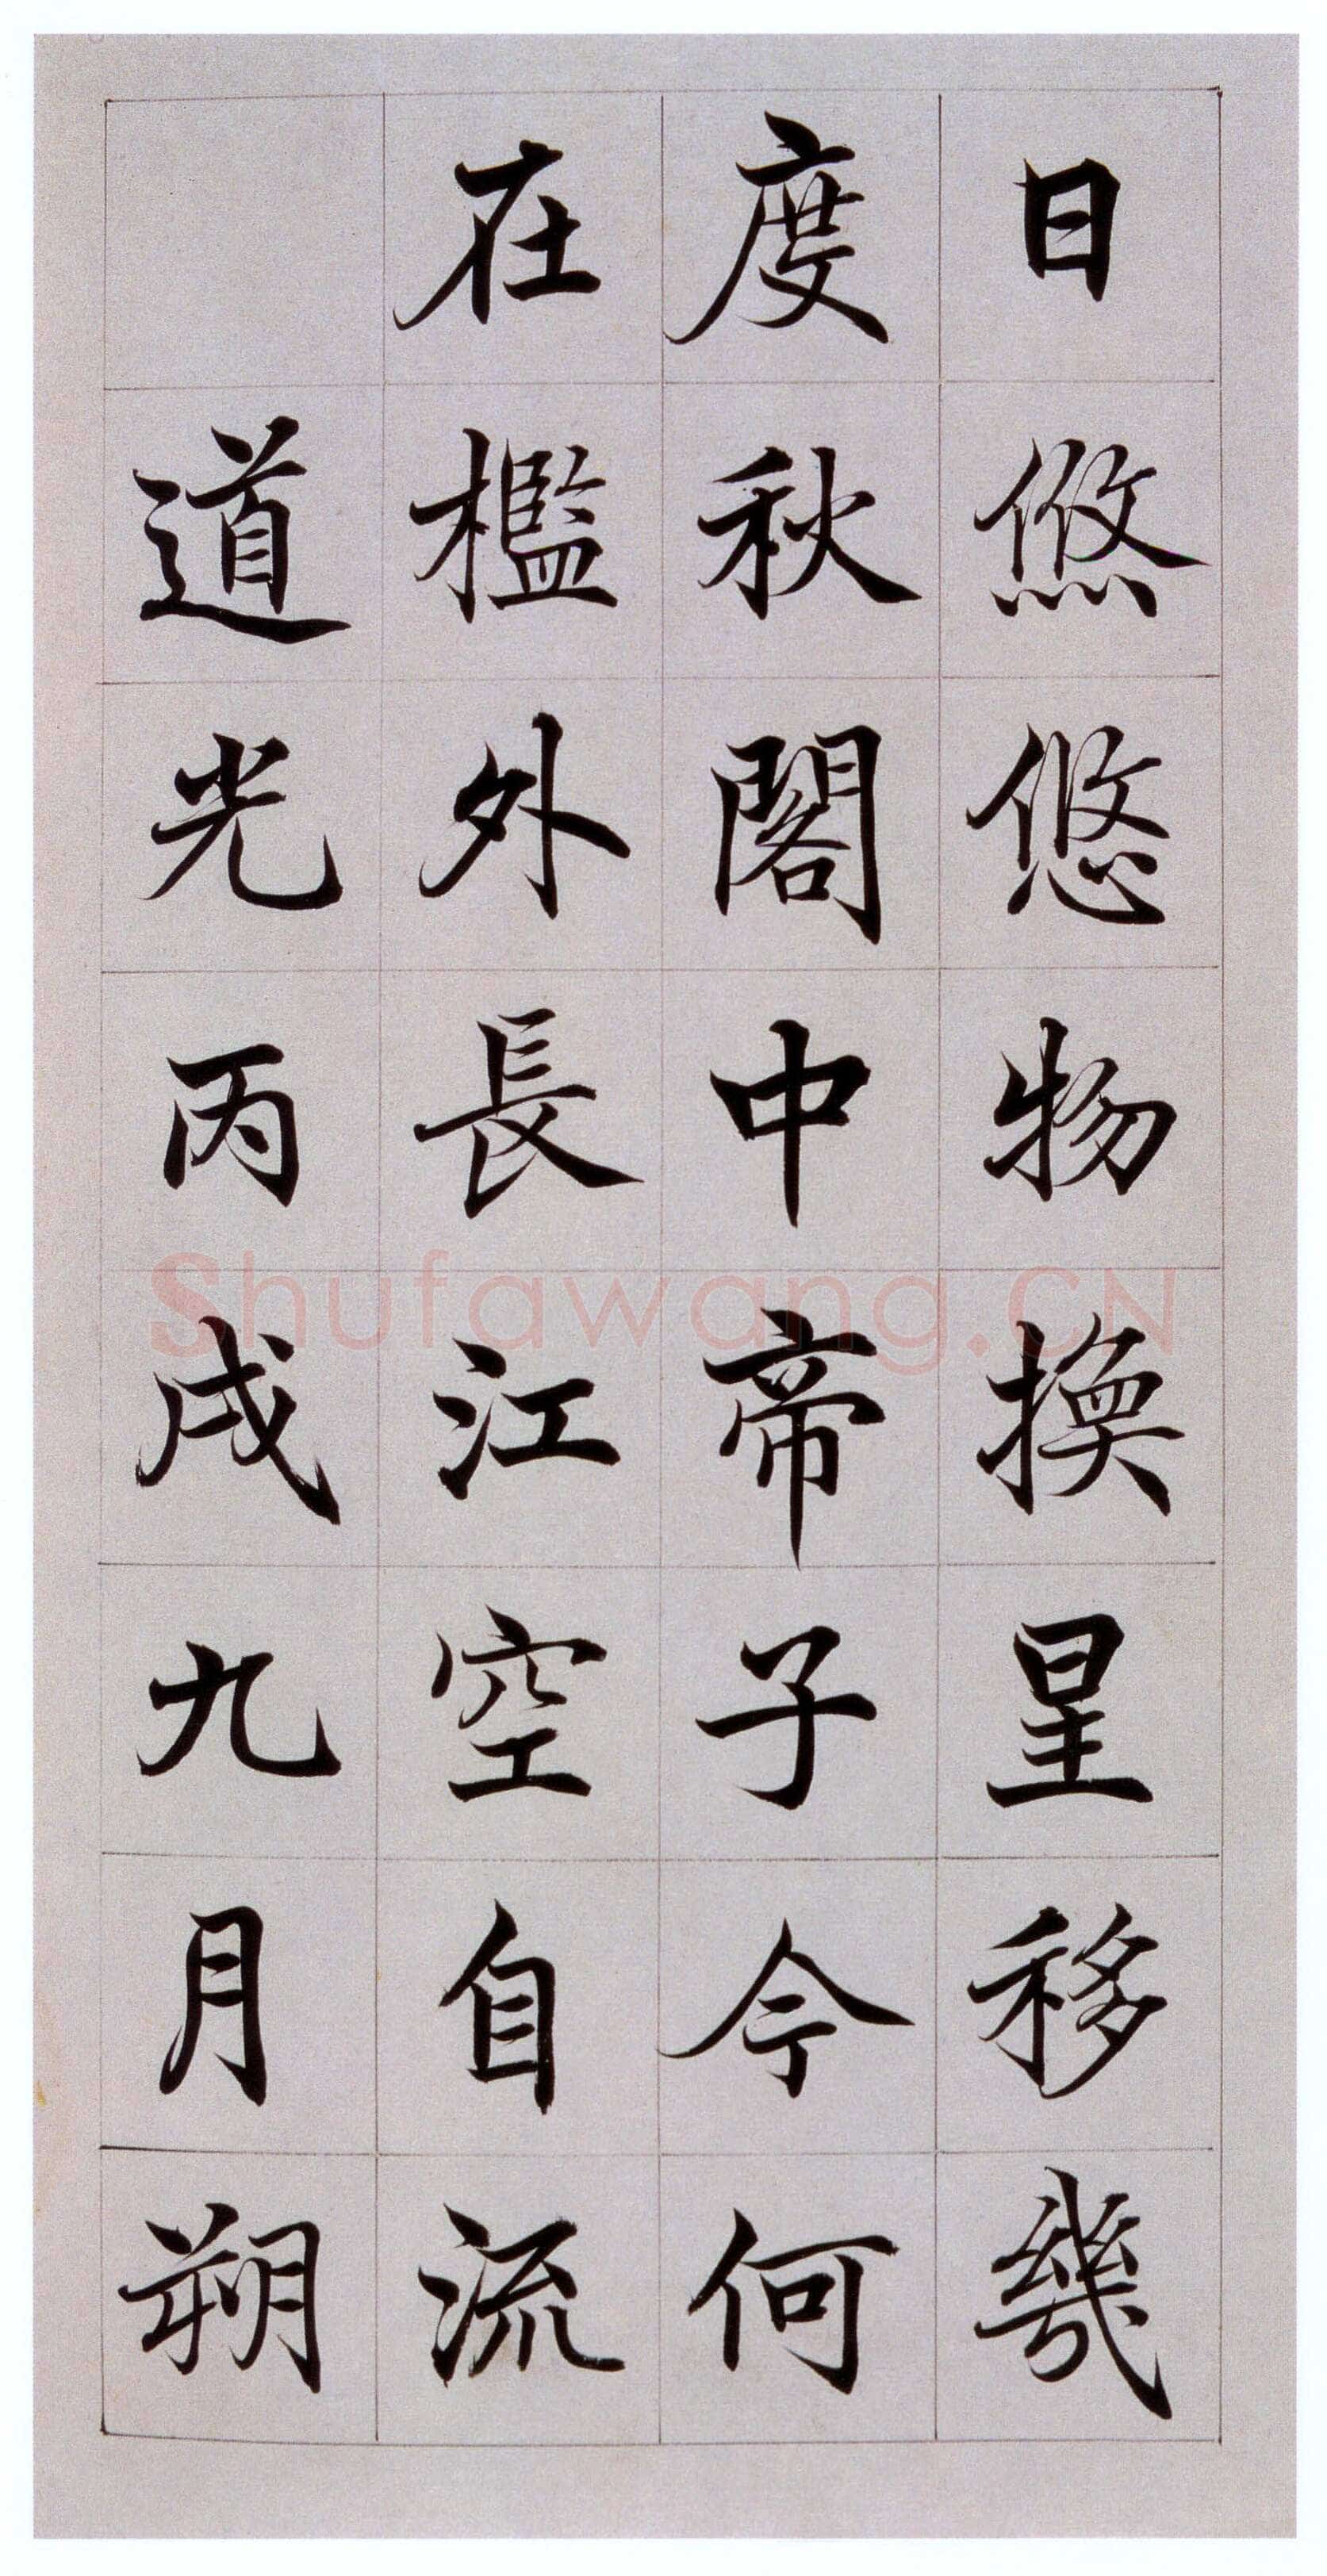 日悠悠物換星移幾
度秋閣中帝子今何
在檻外長江空自流
道光丙戌九月朔
Shufawang.CN